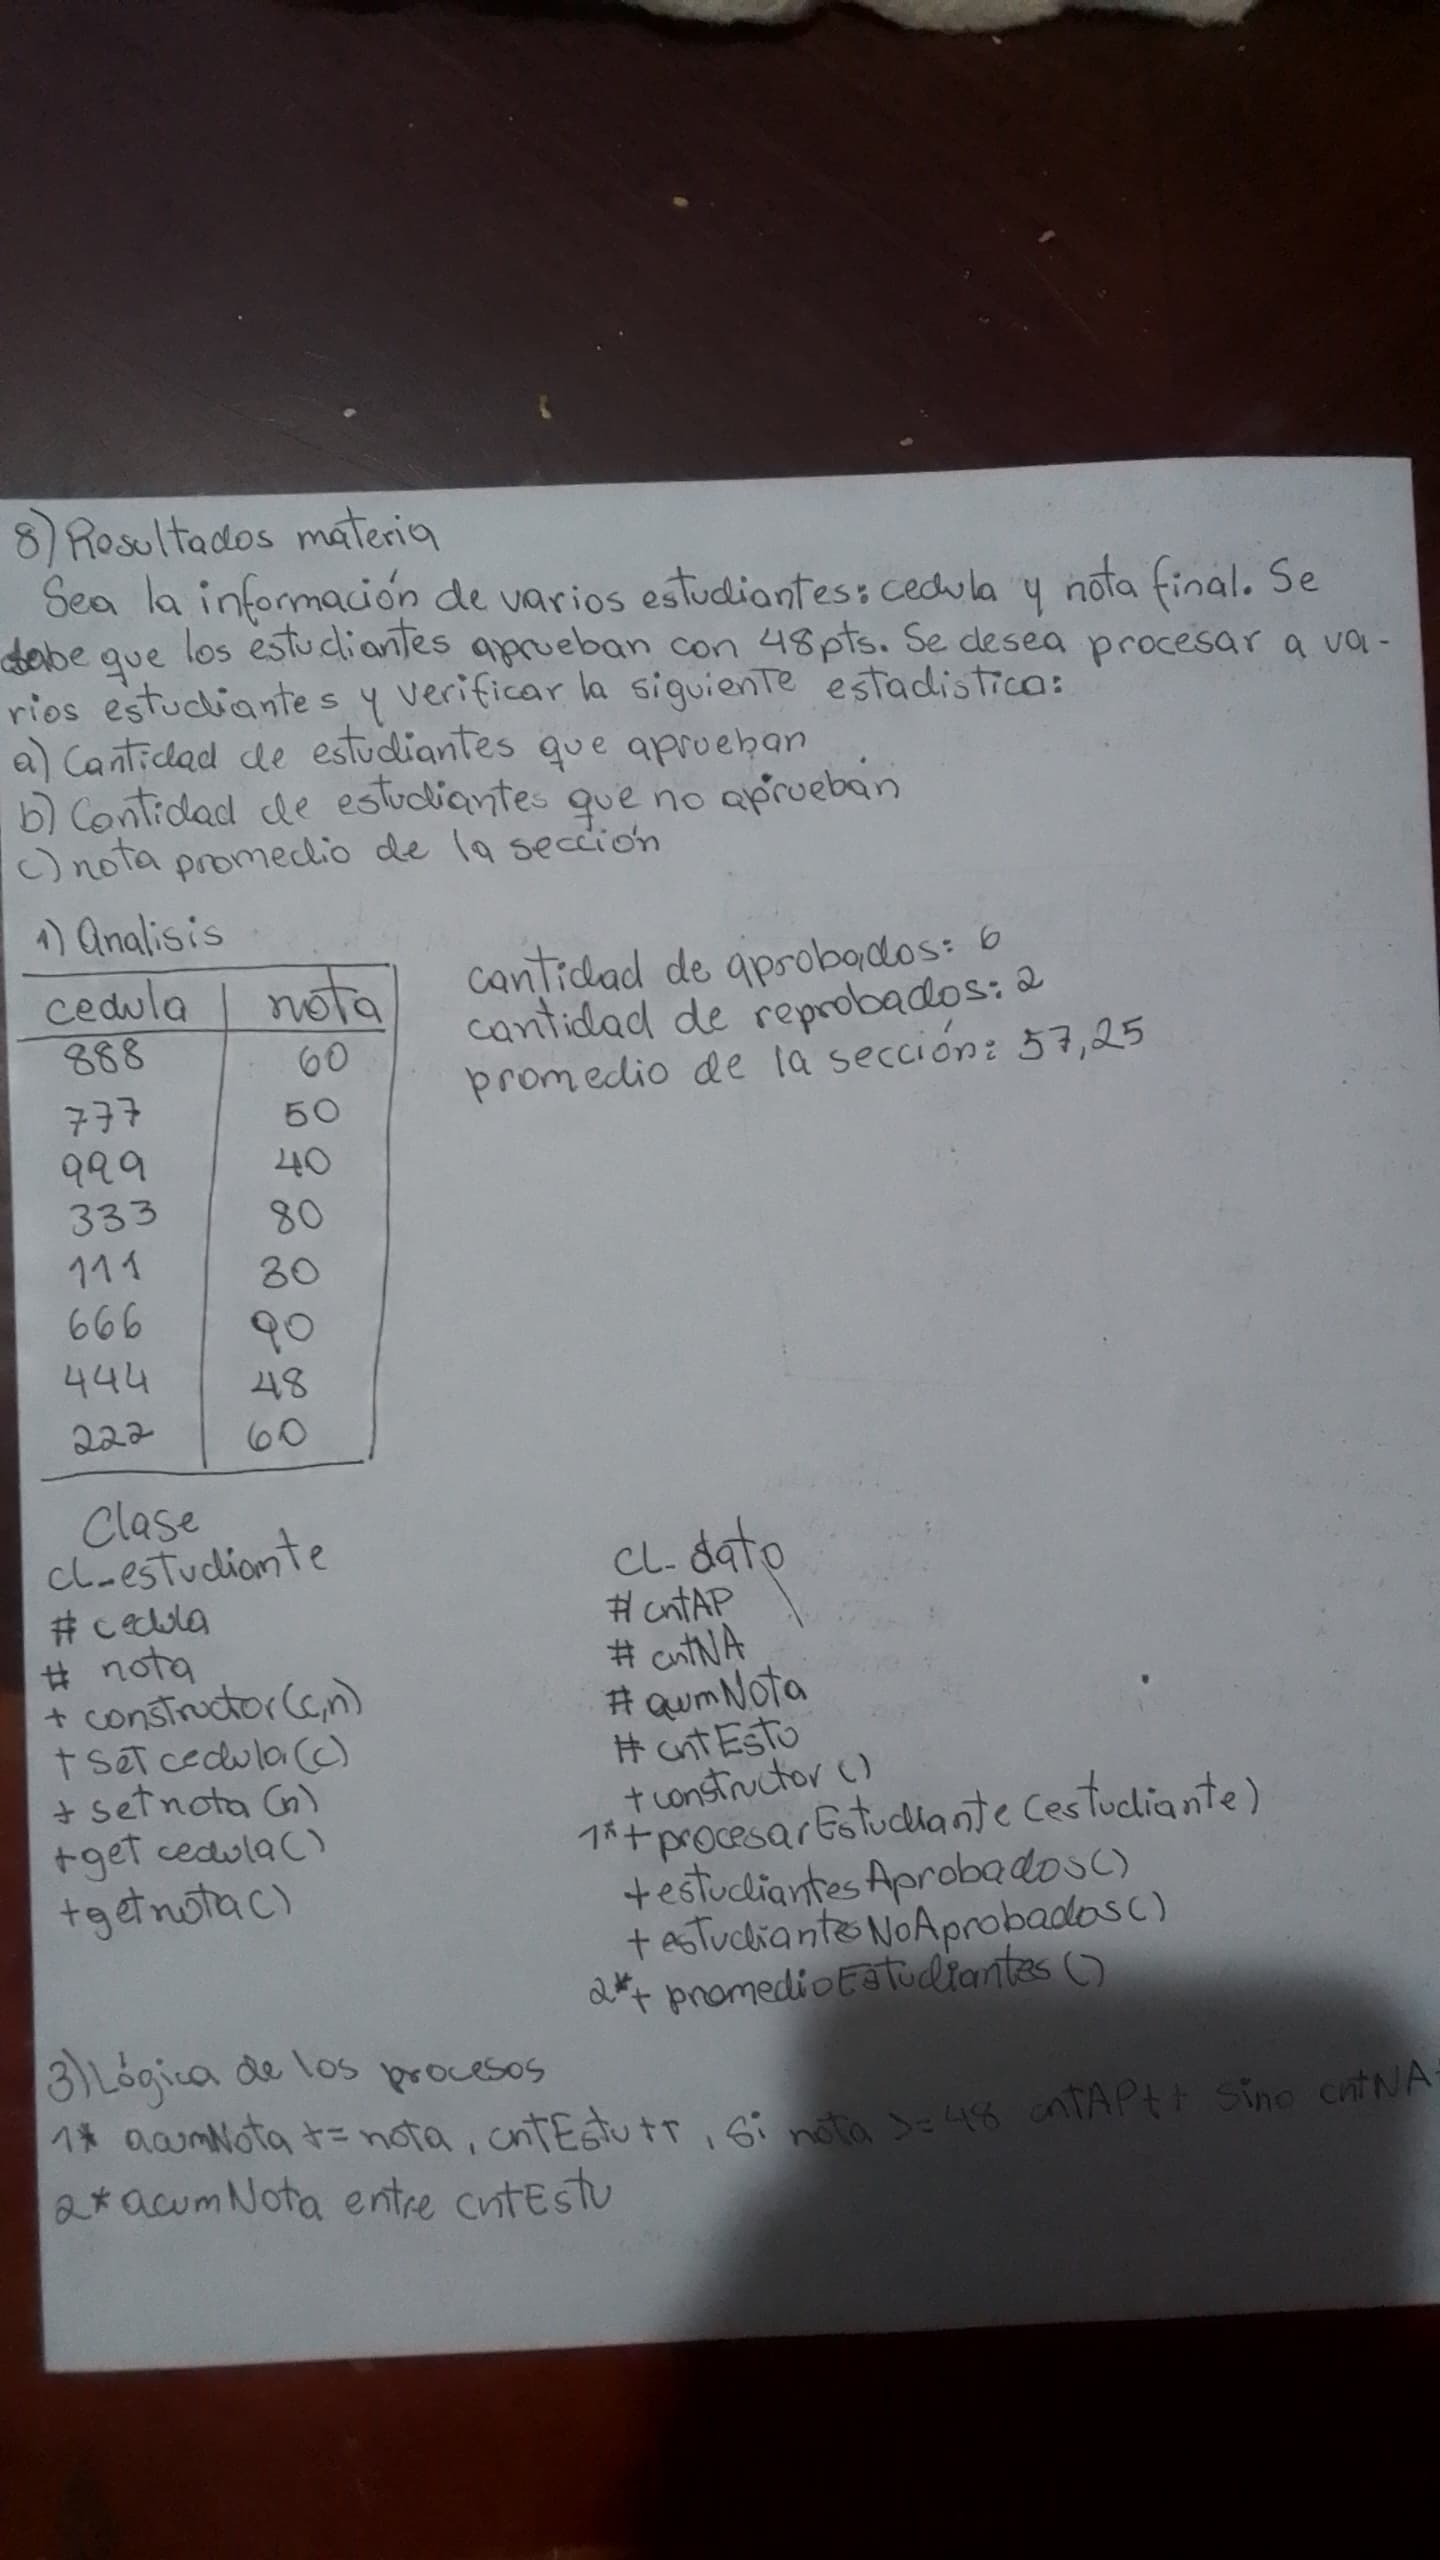 8) Resultados materia
Sea la información de varios estudiantes: cedula y nota final. Se
sabe que los estudiantes aprueban con 48pts. Se desea procesar a va-
rios estudiantes y verificar la siguiente estadistica:
a) Cantidad de estudiantes que aprueban
b) Cantidad de estudiantes que no aprueban
c) nota promedio de la sección
1) Analisis
cedula nota
888 60
777 50
999 40
333 80
111 30
666 90
444 48
222 60
cantidad de aprobados: 6
cantidad de reprobados: 2
promedio de la sección: 57,25
Clase
CL_estudiante
# cedula
# nota
+ constructor(c,n)
+ set cedula(c)
+ setnota(n)
+get cedula()
+getnota()
CL_dato
# cntAP
# cntNA
# acumNota
# cntEstu
+constructor()
1*+procesarEstudiante(estudiante)
+estudiantesAprobados()
+estudiantesNoAprobados()
2*+ promedioEstudiantes()
3) Lógica de los procesos
1* acumNota += nota, cntEstu++, Si nota >= 48 cntAP++ sino cntNA+
2* acumNota entre cntEstu